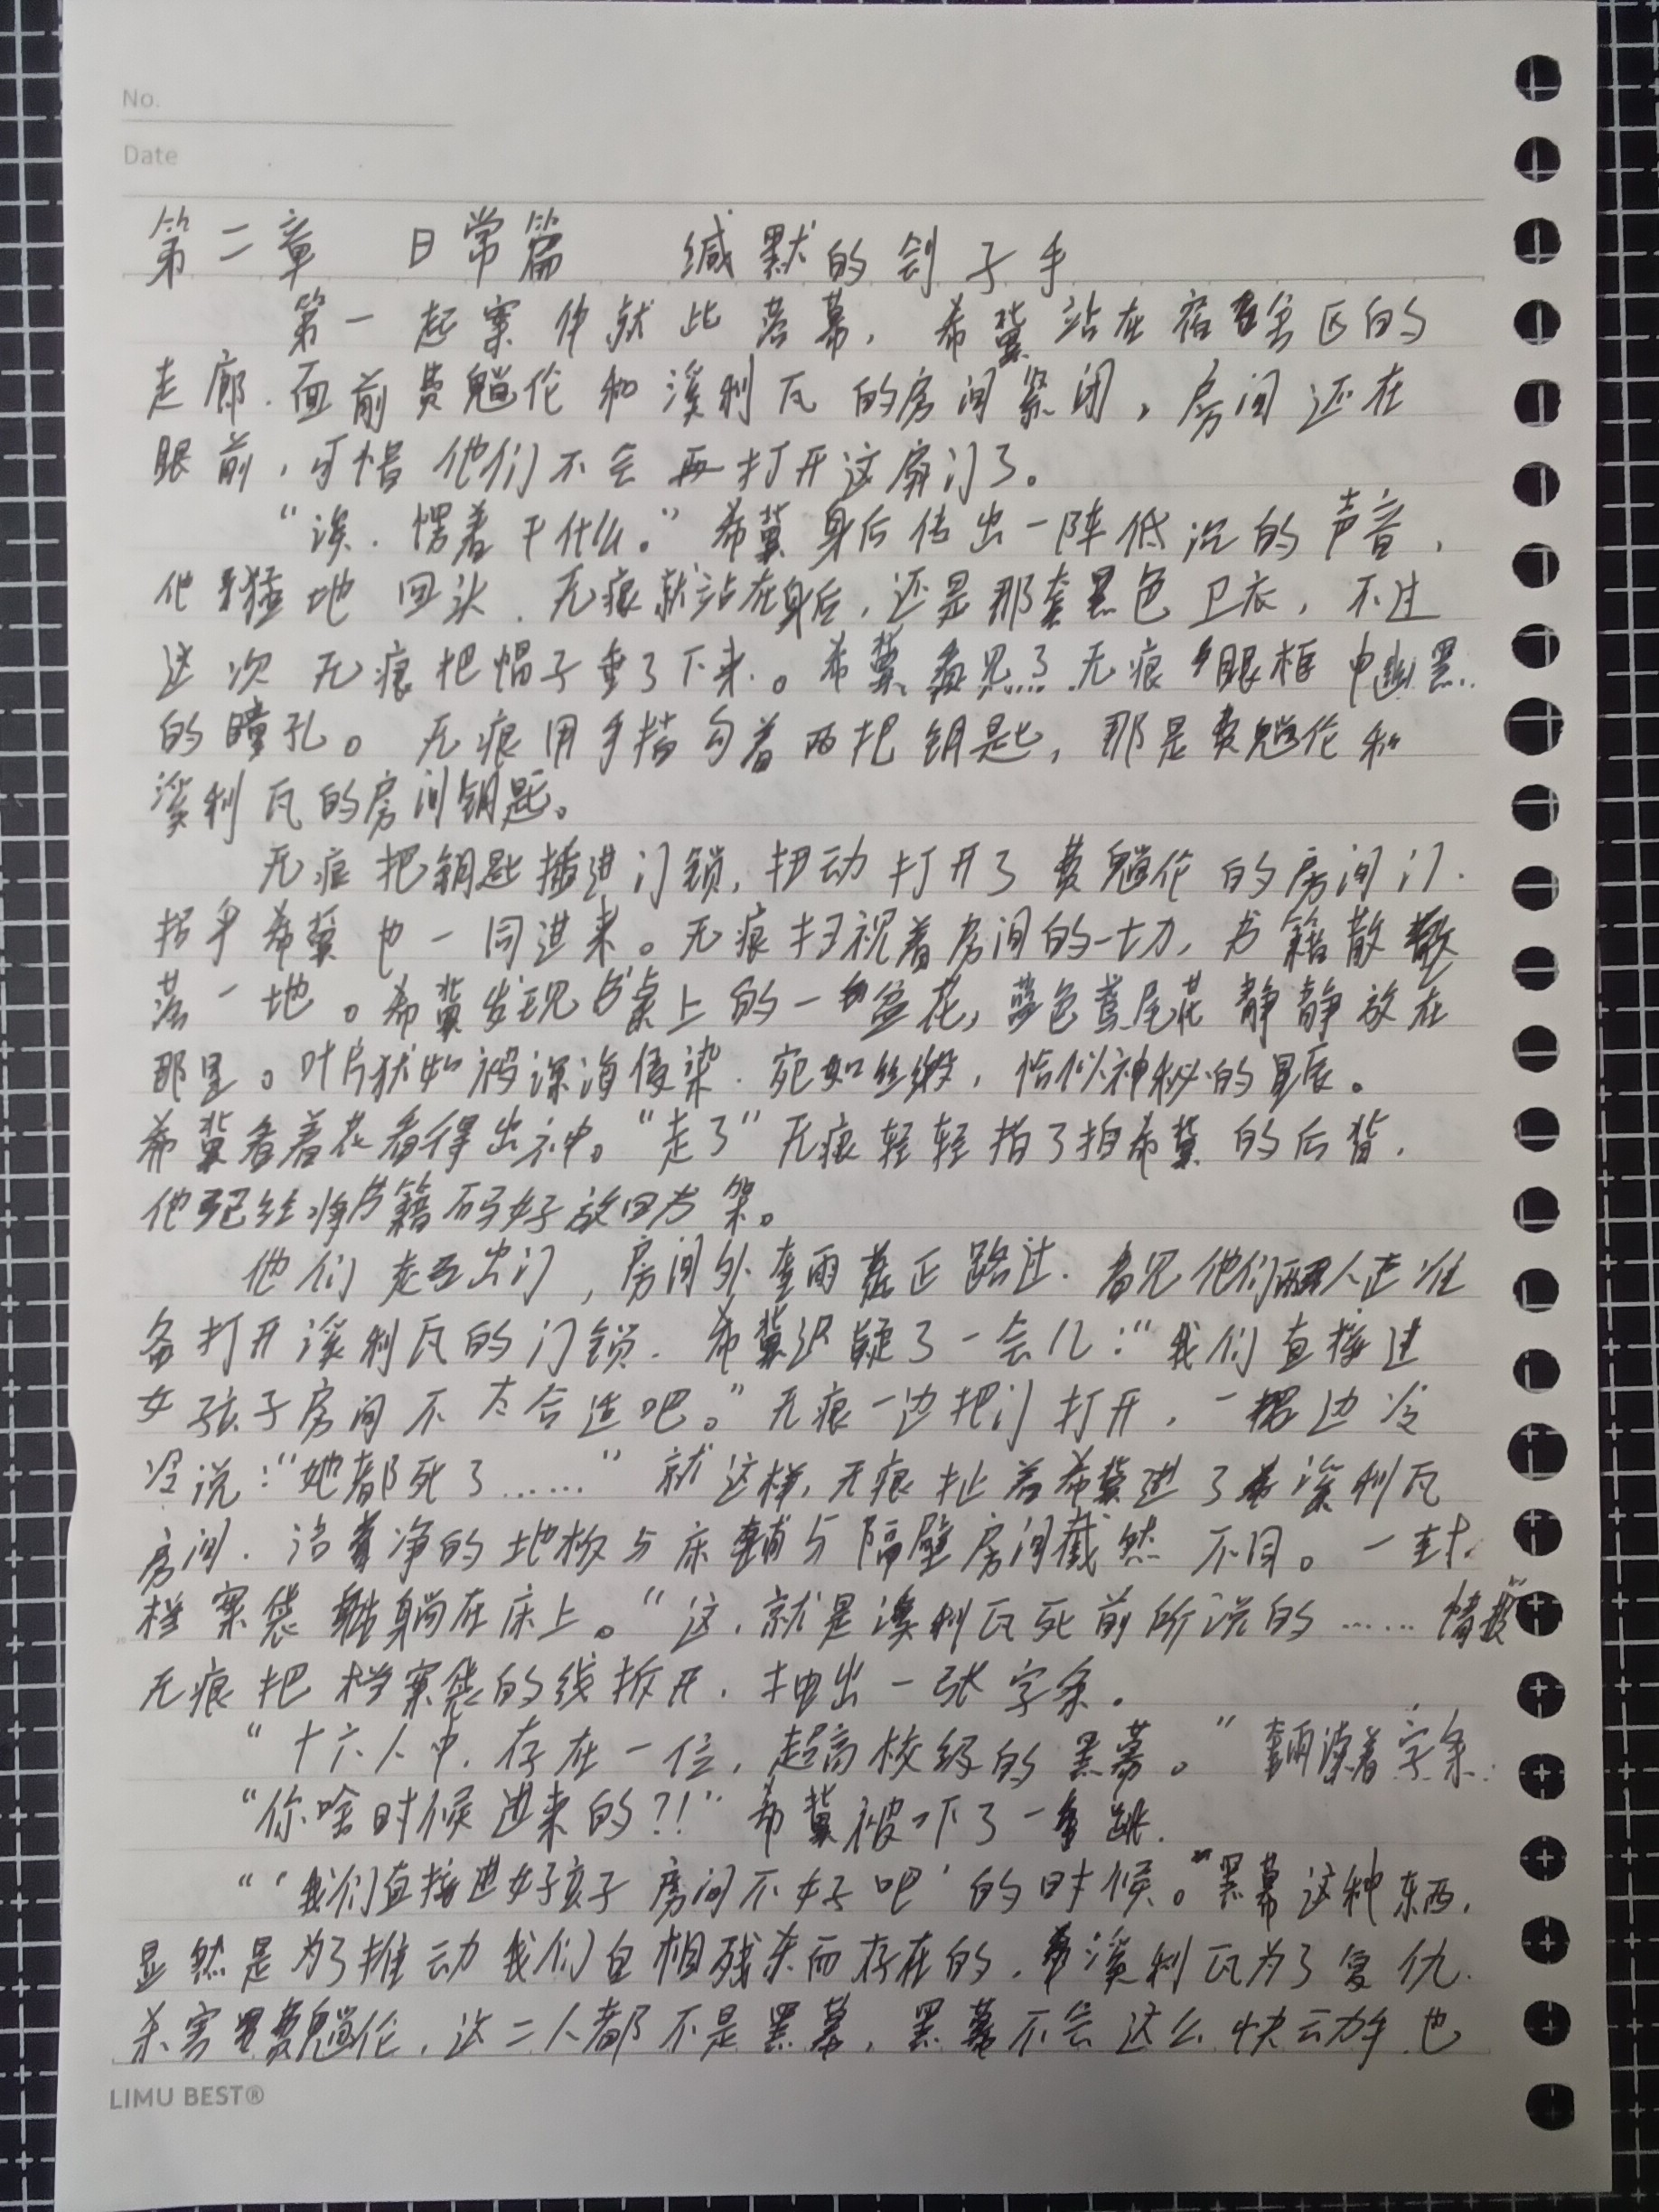 No.
Date
第二章 日常篇 缄默的刽子手
第一起案件就此落幕，希冀站在宿舍区的
走廊．面前费魍伦和溪利瓦的房间紧闭，房间还在
眼前，可惜他们不会再打开这扇门了。
“诶．愣着干什么。”希冀身后传出一阵低沉的声音，
他猛地回头．无痕就站在身后，还是那套黑色卫衣，不过
这次无痕把帽子垂了下来。希冀看见了无痕眼框中幽黑
的瞳孔。无痕用手指勾着两把钥匙，那是费魍伦和
溪利瓦的房间钥匙。
无痕把钥匙插进门锁，扭动打开了费魍伦的房间门．
招乎希冀也一同进来。无痕扫视着房间的一切，书籍散
落一地。希冀发现书桌上的一盆花，蓝色鸢尾花静静放在
那里。叶片犹如被深海侵染．宛如丝缎，恰似神秘的星辰。
希冀看着花看得出神。“走了”无痕轻轻拍了拍希冀的后背．
他已经将书籍码好放回书架。
他们走出门，房间外奎雨菘正路过．看见他们两人正准
备打开溪利瓦的门锁．希冀迟疑了一会儿：“我们直接进
女孩子房间不太合适吧。”无痕一边把门打开，一边冷
冷说：“她都死了……”就这样，无痕扯着希冀进了溪利瓦
房间．洁净的地板与床铺与隔壁房间截然不同。一封
档案袋躺在床上。“这，就是溪利瓦死前所说的……情报”
无痕把档案袋的线拆开．抽出一张字条．
“十六人中．存在一位，超高校级的黑幕。”奎雨读着字条．
“你啥时候进来的？！”希冀被吓了一跳．
“‘我们直接进女孩子房间不好吧’的时候。”黑幕这种东西，
显然是为了推动我们自相残杀而存在的．溪利瓦为了复仇
杀害费魍伦，这二人都不是黑幕，黑幕不会这么快动手．也
LIMU BEST®